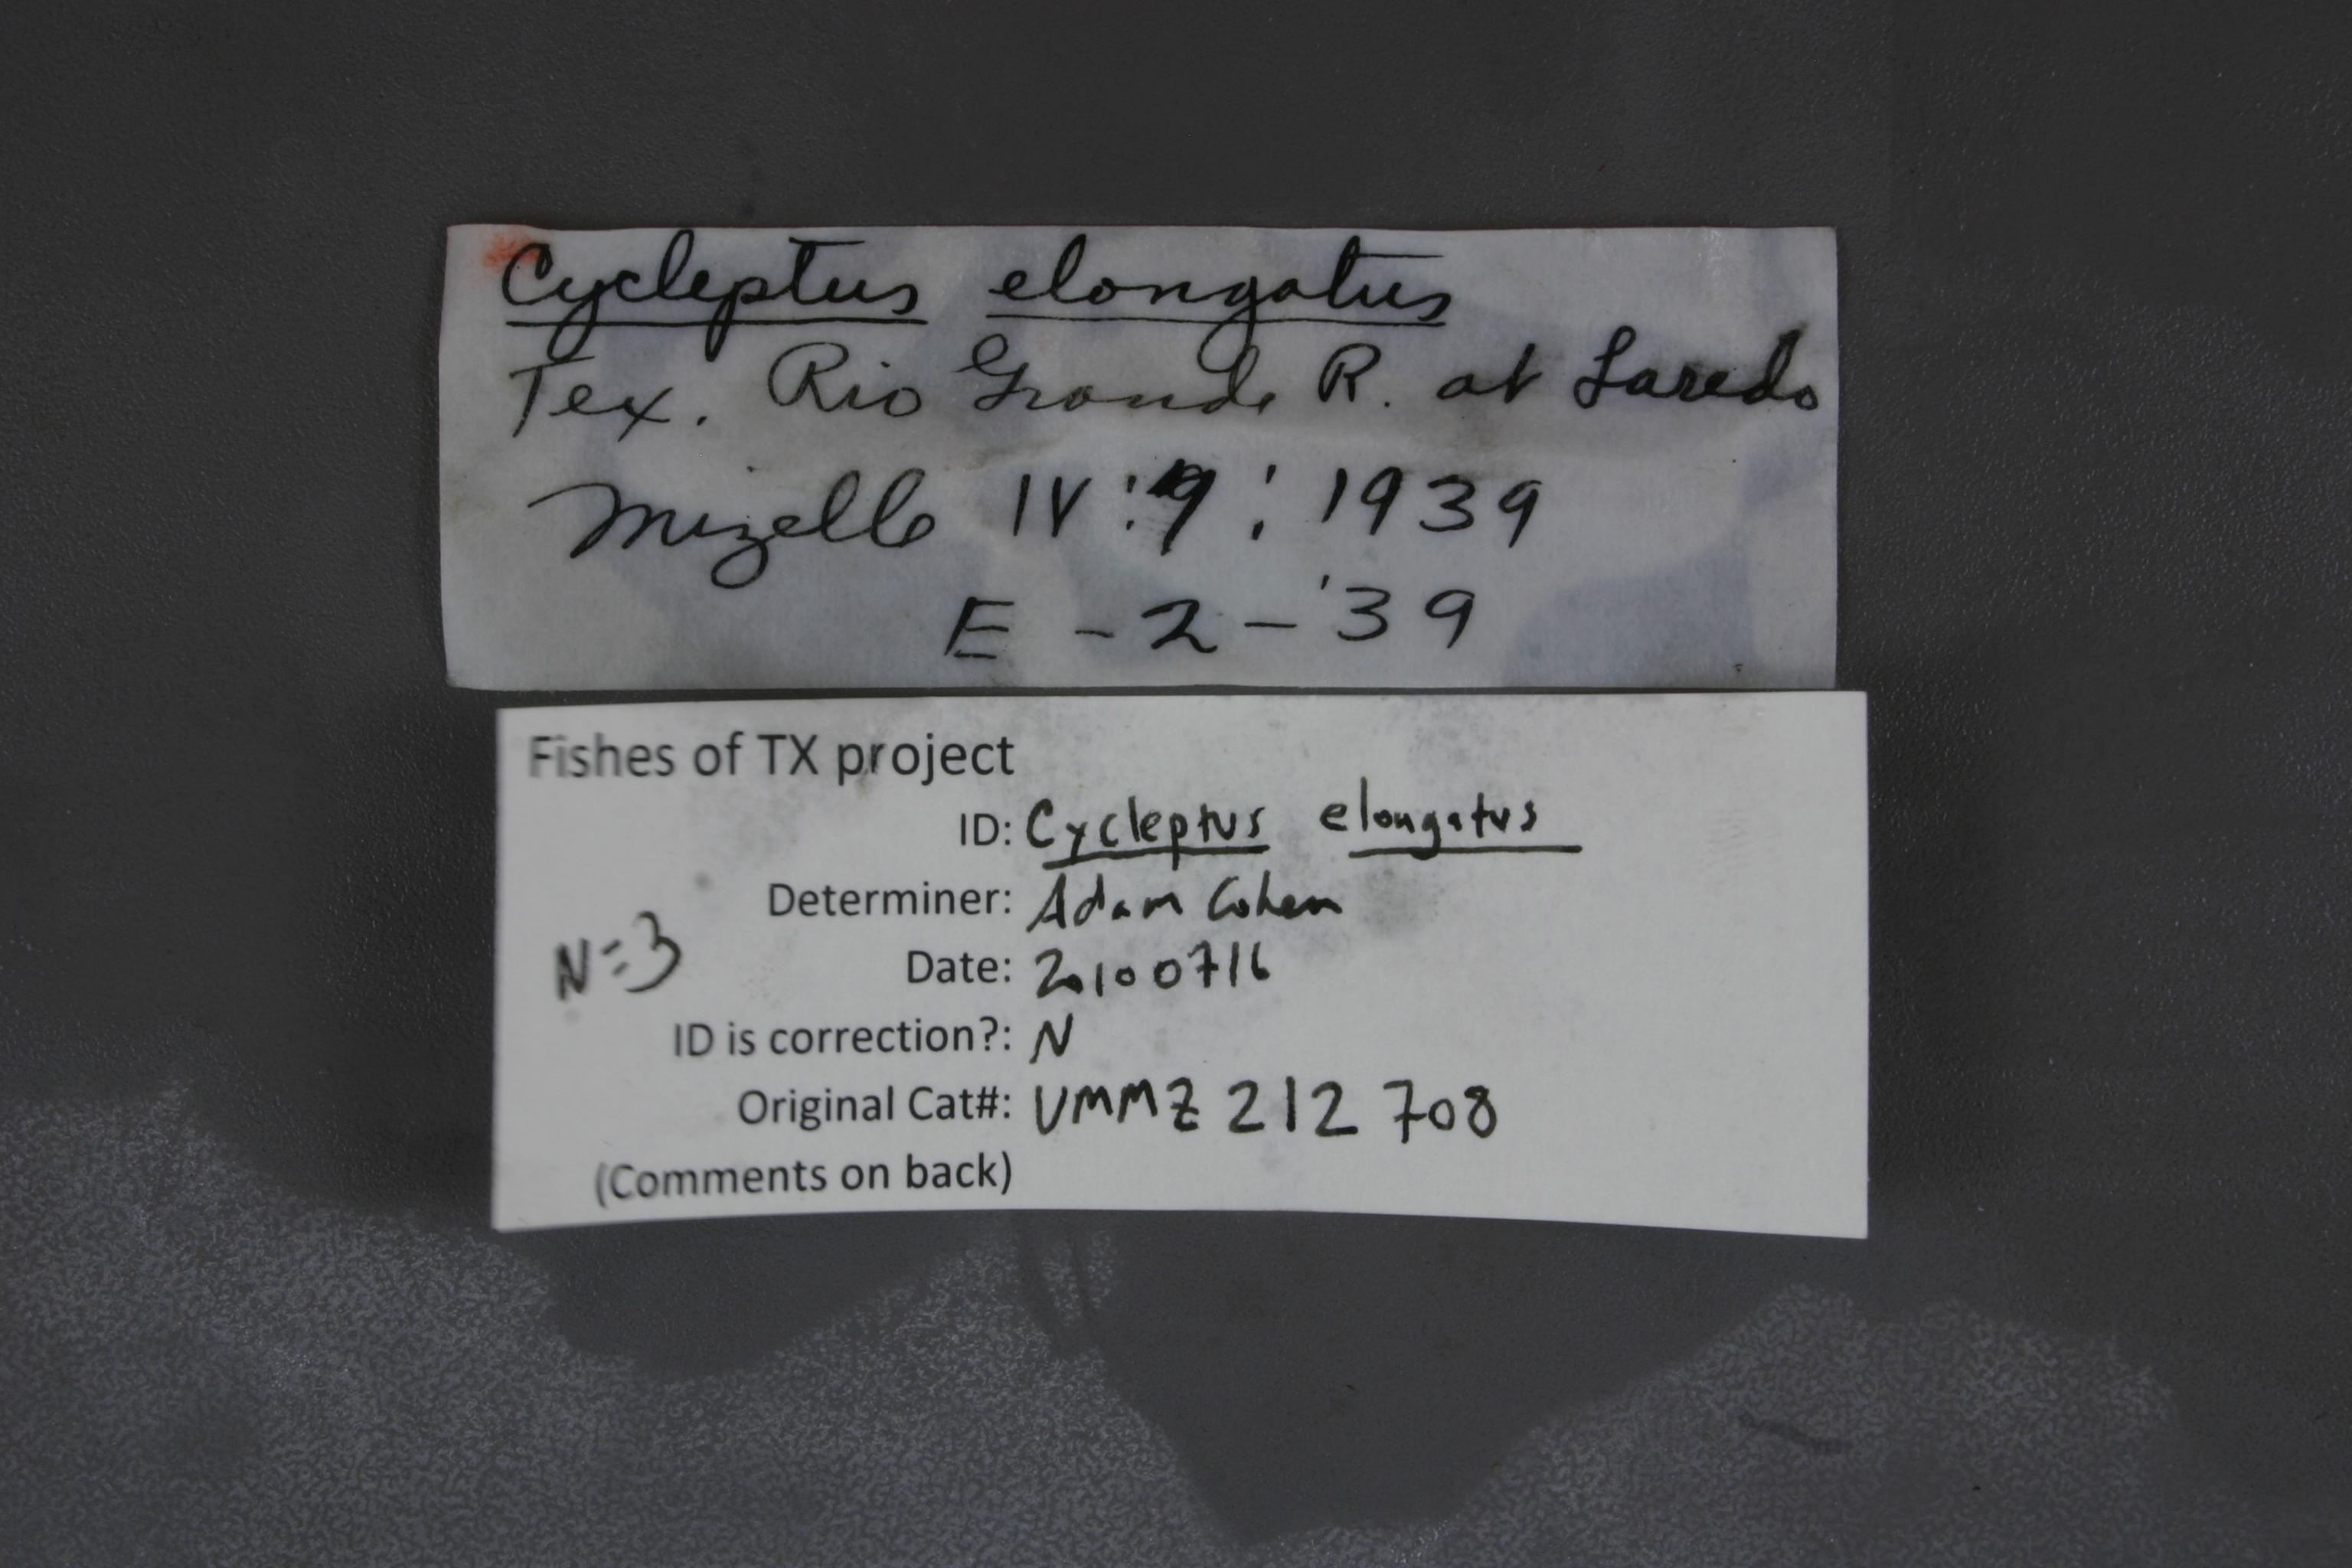 Cycleptus elongatus
Tex. Rio Grande R. at Laredo
Mizelle IV:9:1939
E-2-'39
Fishes of TX project
ID: Cycleptus elongatus
Determiner: Adam Cohen
N=3
Date: 20100716
ID is correction?: N
Original Cat#: UMMZ 212 708
(Comments on back)